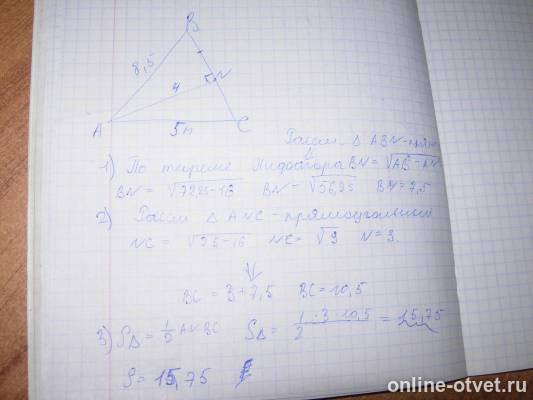 B
8,5
4
N
A
5м
C
Рассм. Δ ABN-прям
1) По теореме Пифагора BN = √AB - AN
BN = √72,25-16 BN = √56,25 BN = 7,5
2) Рассм Δ ANC - прямоугольный
NC = √25-16 NC = √9 N = 3.
BC = 3+7,5 BC = 10,5
3) SΔ = 1/2 AN BC SΔ = 1/2 · 3 · 10,5 = 15,75
S = 15,75
online-otvet.ru